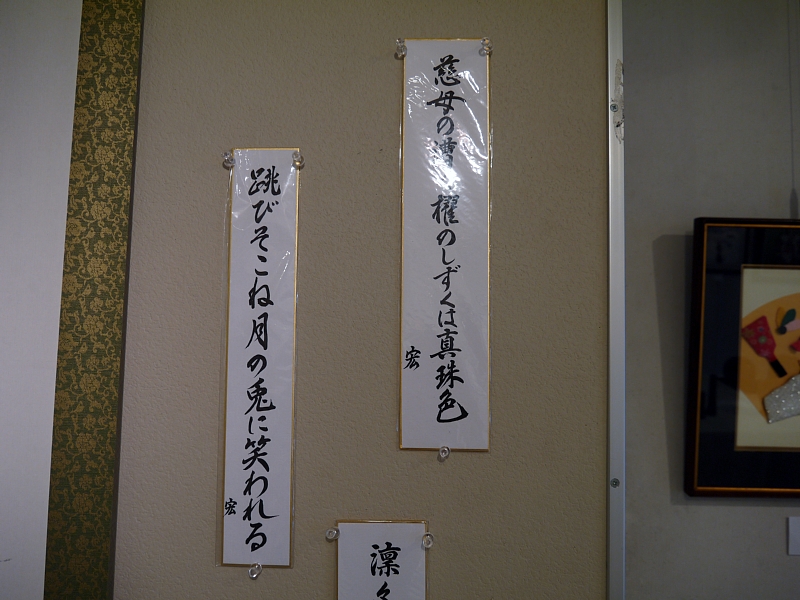 慈母の漕ぐ櫂のしずくは真珠色
宏
跳びそこね月の兎に笑われる
宏
凛々